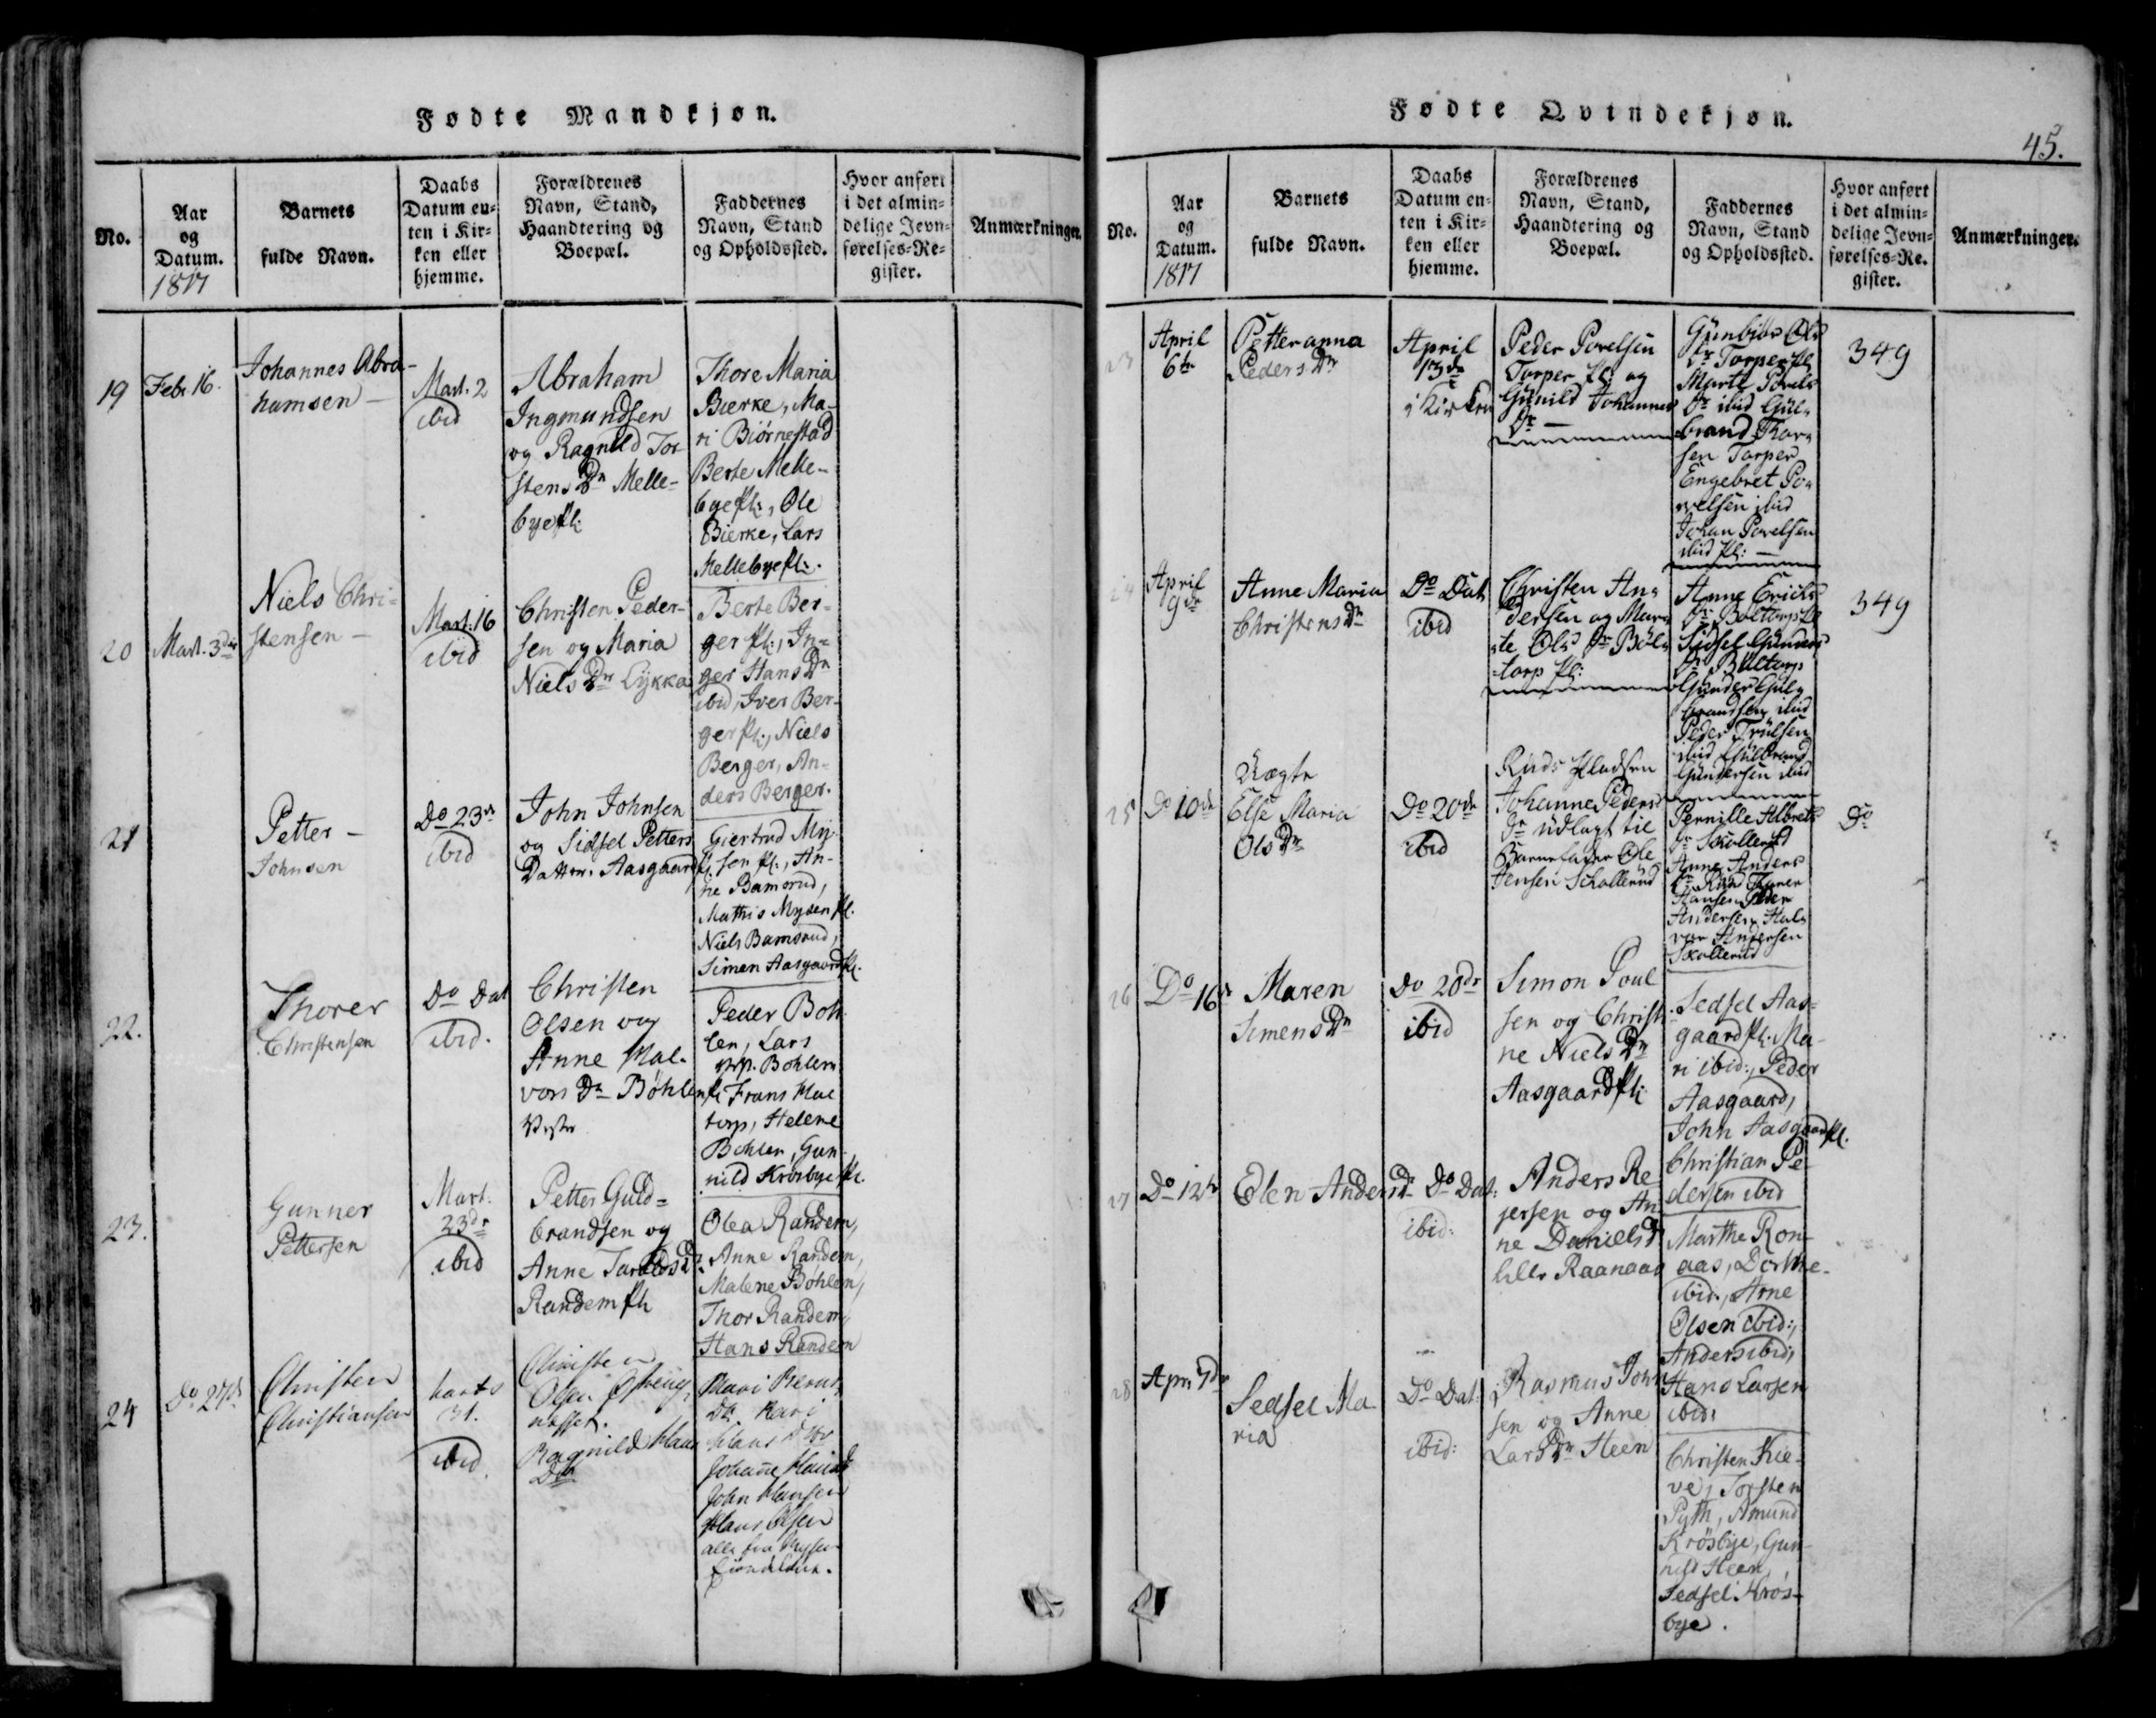 Fødte Mandkjøn.
No.
Aar
og
Datum.
1817
Barnets
fulde Navn.
Daabs
Datum en-
ten i Kir-
ken eller
hjemme.
Forældrenes
Navn, Stand,
Haandtering og
Boepæl.
Faddernes
Navn, Stand
og Opholdssted.
Hvor anført
i det almin-
delige Jevn-
førelses-Re-
gister.
Anmærkninger.
19
Febr 16.
Johannes Abra-
hamsen —
Mart. 2
ibid
Abraham
Ingmundsen
og Ragnild Tor-
stens Dr Melle-
bye pl:
Thore Maria
Bierke, Ma-
ri Biørnestad
Berte Melle-
bye pl:, Ole
Bierke, Lars
Mellebye pl:.
20
Mart. 3die
Niels Chri-
stensen —
Mart: 16
ibid
Christen Peder-
sen og Maria
Niels Dr Lykka
Berte Ber-
ger pl:, In-
ger Hans Dr
ibid, Iver Ber-
ger pl:, Niels
Berger, An-
ders Berger.
21
Petter —
Johnsen
Do 23de
ibid
John Johnsen
og Sidsel Petters
Datter Aasgaard pl.
Giertrud My-
sen pl., An-
ne Bamsrud,
Mathis Mysen pl.
Niels Bamsrud,
Simen Aasgaard pl.
22.
Thorer
Christensen
Do Dat
ibid.
Christen
Olsen og
Anne Hal-
vors Dr Bøhlen pl
Vestr
Peder Boh-
len, Lars
Bohlen
Frans Hal
torp, Helene
Bohlen, Gun-
nild Krosbye pl.
23.
Gunner
Pettersen
Mart.
23de
ibid
Petter Guld-
brandsen og
Anne Taralds Dr
Randem pl
Olea Randem,
Anne Randem,
Malene Bøhlen,
Thor Randem,
Hans Randem
24
Do 27de
Christen
Christiansen
Marts
31.
ibid.
Christen
Olsen
Ragnild Hans
Dr
Mari
Dr. Kari
Hans Dtr
Johanne Hansd
John Hansen
Hans Olsen
alle fra Mysen
Eiendelene.
Fødte Qvindekjøn.
45.
No.
Aar
og
Datum.
1817
Barnets
fulde Navn.
Daabs
Datum en-
ten i Kir-
ken eller
hjemme.
Forældrenes
Navn, Stand,
Haandtering og
Boepæl.
Faddernes
Navn, Stand
og Opholdssted.
Hvor anført
i det almin-
delige Jevn-
førelses-Re-
gister.
Anmærkninger.
23
April
6te
Petteranna
Peders Dr
April
13de
i Kirken
Peder Povelsen
Torper pl: og
Gunild Johannes
Dr —
Gunbiør Ols
Dr Torper pl
Marte Povels
Dr ibid Gul-
brand Thor-
sen Torper
Engebret Po-
velsen ibid
Johan Povelsen
ibid pl: —
349
24
April
9de
Anne Maria
Christens Dr
Do Dat
ibid
Christen An-
dersen og Mar-
te Ols Dr Böl-
torp pl:
Anne Erichs
Dr Boltorp pl
Sidsel Gunders
Dr Bültorp
Gunder Gul-
brandsen ibid
Peder Trulsen
ibid Gulbrand
Gundersen ibid
349
25
Do 10de
Uægte
Else Maria
Ols Dr
Do 20de
ibid
Ruds Pladsen
Johanne Peders
Dr udlagt til
Barnefader Ole
Jensen Skollerud
Pernille Albrets
Dr Skollerud
Anne Anders
Dr Rud Gunner
Hansen Peder
Andersen Hal-
vor Andersen
Skollerud
Do
26
Do 16de
Maren
Simens Dr
Do 20de
ibid
Simon Poul
sen og Christi-
ne Niels Dr
Aasgaard pl:
Sedsel Aas-
gaard pl. Ma-
ri ibid:, Peder
Aasgaard,
John Aasgaard pl.
Christian Pe-
dersen ibid
27
Do 12te
Elen Anders Dr
Do Dat:
ibid:
Anders Re-
jersen og An-
ne Daniels Dr
lille Raanaas
Marthe Ron-
aas, Dorthe
ibid., Arne
Olsen ibid:,
Anders ibid;
Hans Larsen
ibid:
28
Apr. 7de
Sedsel Ma
ria
Do Dat:
ibid:
Rasmus John
sen og Anne
Lars Dr Heen
Christen Kie-
ve, Torsten
Pyth, Amund
Krösbye, Gun-
nild Heen,
Sedsel Krös-
bye.